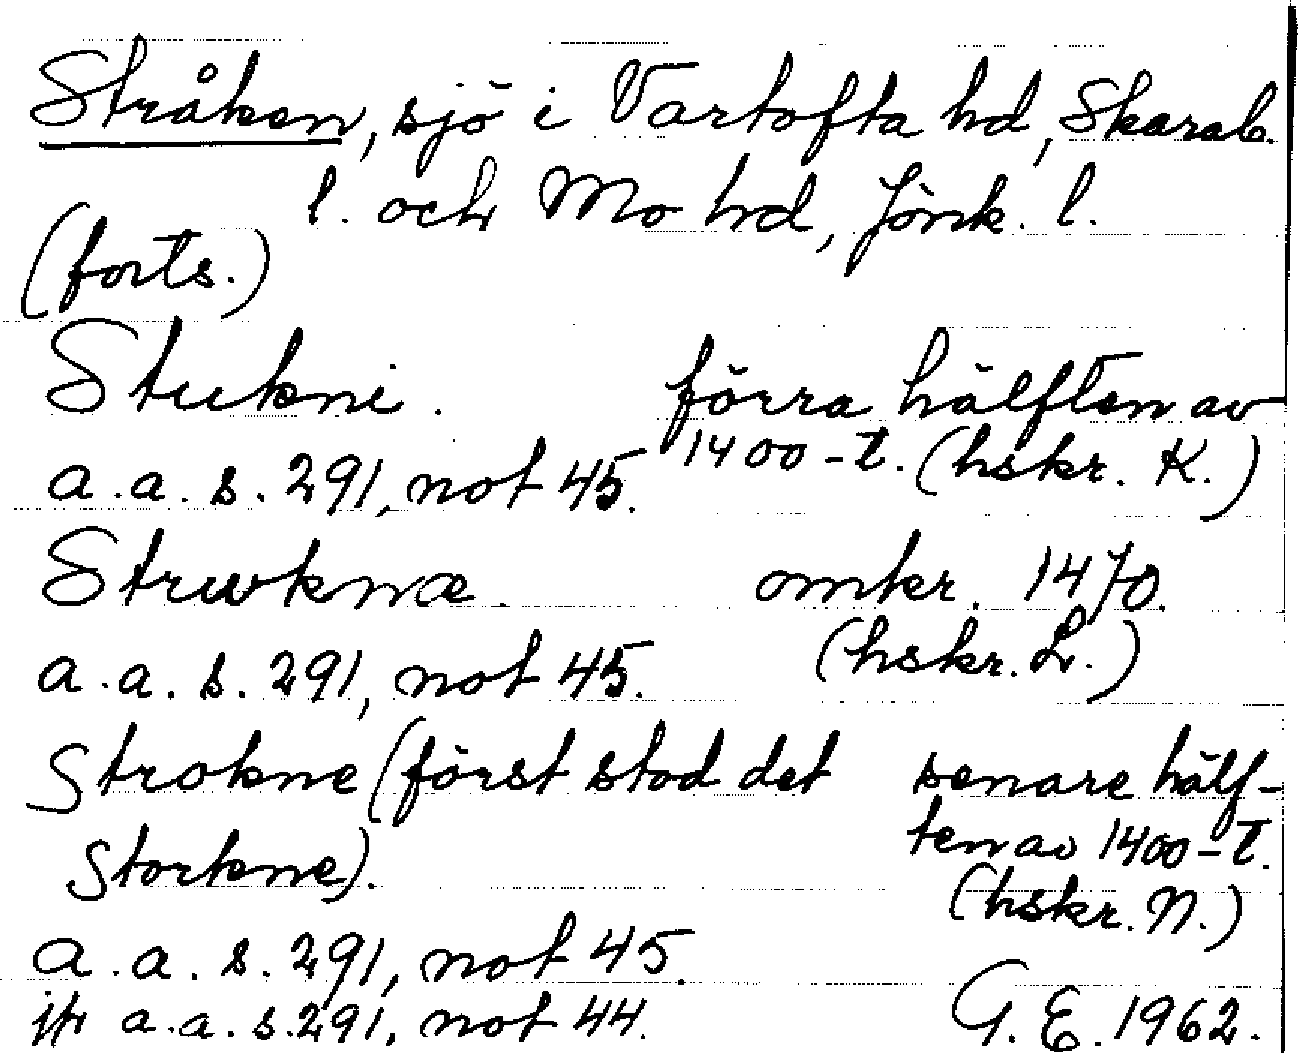 Stråken, sjö i Vartofta hd, Skarab.
l. och Mo hd, Jönk. l.
(forts.)
Stukni. förra hälften av
a.a. s. 291, not 45. 1400-t. (hskr. K.)
Struknæ. omkr. 1470.
a.a. s. 291, not 45. (hskr. L.)
Strokne (först stod det senare hälf-
Storkne). ten av 1400-t.
(hskr. N.)
a.a. s. 291, not 45.
jfr a.a. s. 291, not 44. G. E. 1962.